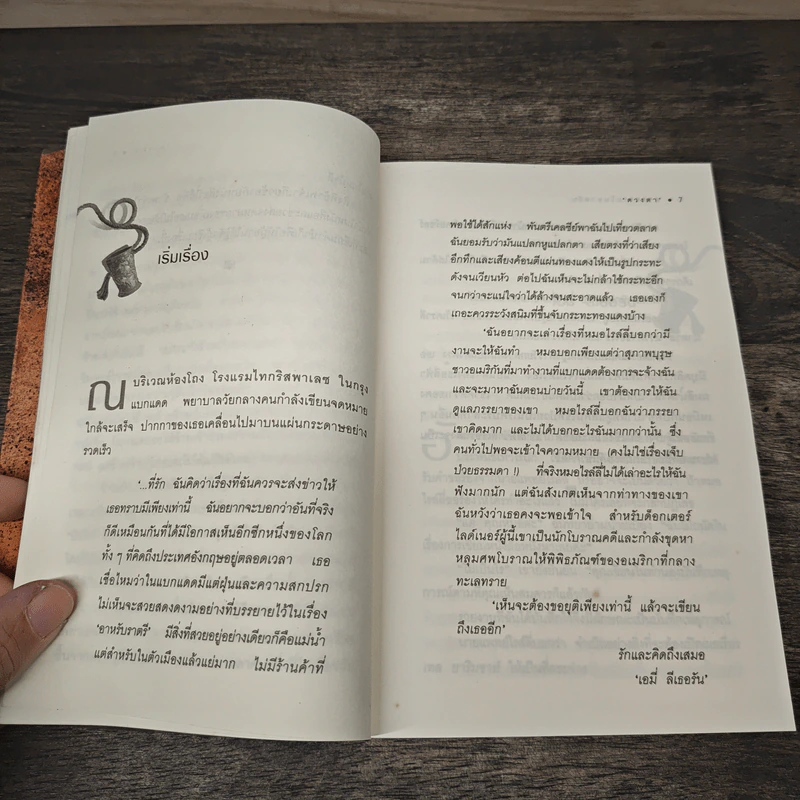 เริ่มเรื่อง
ณ บริเวณห้องโถง โรงแรมไทกริสพาเลซ ในกรุง
แบกแดด พยาบาลวัยกลางคนกำลังเขียนจดหมาย
ใกล้จะเสร็จ ปากกาของเธอเคลื่อนไปมาบนแผ่นกระดาษอย่าง
รวดเร็ว
'...ที่รัก ฉันคิดว่าเรื่องที่ฉันควรจะส่งข่าวให้
เธอทราบมีเพียงเท่านี้ ฉันอยากจะบอกว่าอันที่จริง
ก็ดีเหมือนกันที่ได้มีโอกาสเห็นอีกซีกหนึ่งของโลก
ทั้ง ๆ ที่คิดถึงประเทศอังกฤษอยู่ตลอดเวลา เธอ
เชื่อไหมว่าในแบกแดดมีแต่ฝุ่นและความสกปรก
ไม่เห็นจะสวยสดงดงามอย่างที่บรรยายไว้ในเรื่อง
'อาหรับราตรี' มีสิ่งที่สวยอยู่อย่างเดียวก็คือแม่น้ำ
แต่สำหรับในตัวเมืองแล้วแย่มาก ไม่มีร้านค้าที่
'ดวงตา' • 7
พอใช้ได้สักแห่ง พันตรีเคลซีย์พาฉันไปเที่ยวตลาด
ฉันยอมรับว่ามันแปลกหูแปลกตา เสียตรงที่ว่าเสียง
อึกทึกและเสียงค้อนตีแผ่นทองแดงให้เป็นรูปกระทะ
ดังจนเวียนหัว ต่อไปฉันเห็นจะไม่กล้าใช้กระทะอีก
จนกว่าจะแน่ใจว่าได้ล้างจนสะอาดแล้ว เธอเองก็
เถอะควรระวังสนิมที่ขึ้นจับกระทะทองแดงบ้าง
'ฉันอยากจะเล่าเรื่องที่หมอไรล์ลี่บอกว่ามี
งานจะให้ฉันทำ หมอบอกเพียงแต่ว่าสุภาพบุรุษ
ชาวอเมริกันที่มาทำงานที่แบกแดดต้องการจะจ้างฉัน
และจะมาหาฉันตอนบ่ายวันนี้ เขาต้องการให้ฉัน
ดูแลภรรยาของเขา หมอไรล์ลี่บอกฉันว่าภรรยา
เขาคิดมาก และไม่ได้บอกอะไรฉันมากกว่านั้น ซึ่ง
คนทั่วไปพอจะเข้าใจความหมาย (คงไม่ใช่เรื่องเจ็บ
ป่วยธรรมดา !) ที่จริงหมอไรล์ลี่ไม่ได้เล่าอะไรให้ฉัน
ฟังมากนัก แต่ฉันสังเกตเห็นจากท่าทางของเขา
ฉันหวังว่าเธอคงจะพอเข้าใจ สำหรับด็อกเตอร์
ไลด์เนอร์ผู้นี้เขาเป็นนักโบราณคดีและกำลังขุดหา
หลุมศพโบราณให้พิพิธภัณฑ์ของอเมริกาที่กลาง
ทะเลทราย
'เห็นจะต้องขอยุติเพียงเท่านี้ แล้วจะเขียน
ถึงเธออีก'
รักและคิดถึงเสมอ
'เอมี่ ลีเธอรัน'